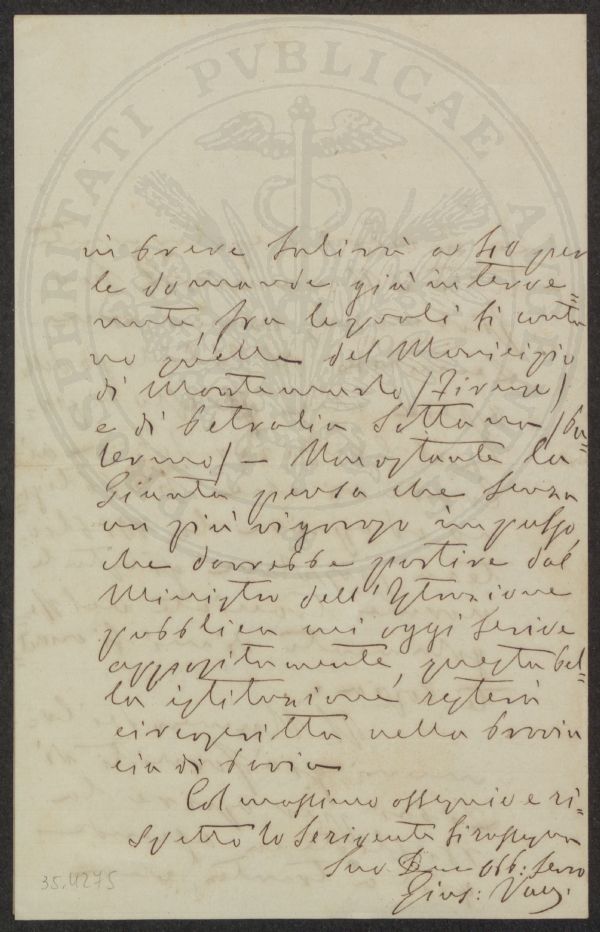 in breve salirà a 510 per
le domande già interve=
nute, fra le quali si conta
no quelle del Municipio
di Montemurlo (Firenze)
e di Petralia Sottana (Pa=
lermo) — Nonostante la
Giunta pensa che senza
un più vigoroso impulso,
che dovrebbe partire dal
Ministro dell'Istruzione
pubblica cui oggi scrive
appositamente, questa bel=
la istituzione resterà
circoscritta nella Provin
cia di Pavia
Col massimo ossequio e ri=
spetto lo scrivente si rassegna
Suo Obb: Servo
Gius:
35.4275
PROSPERITATI PVBLICAE